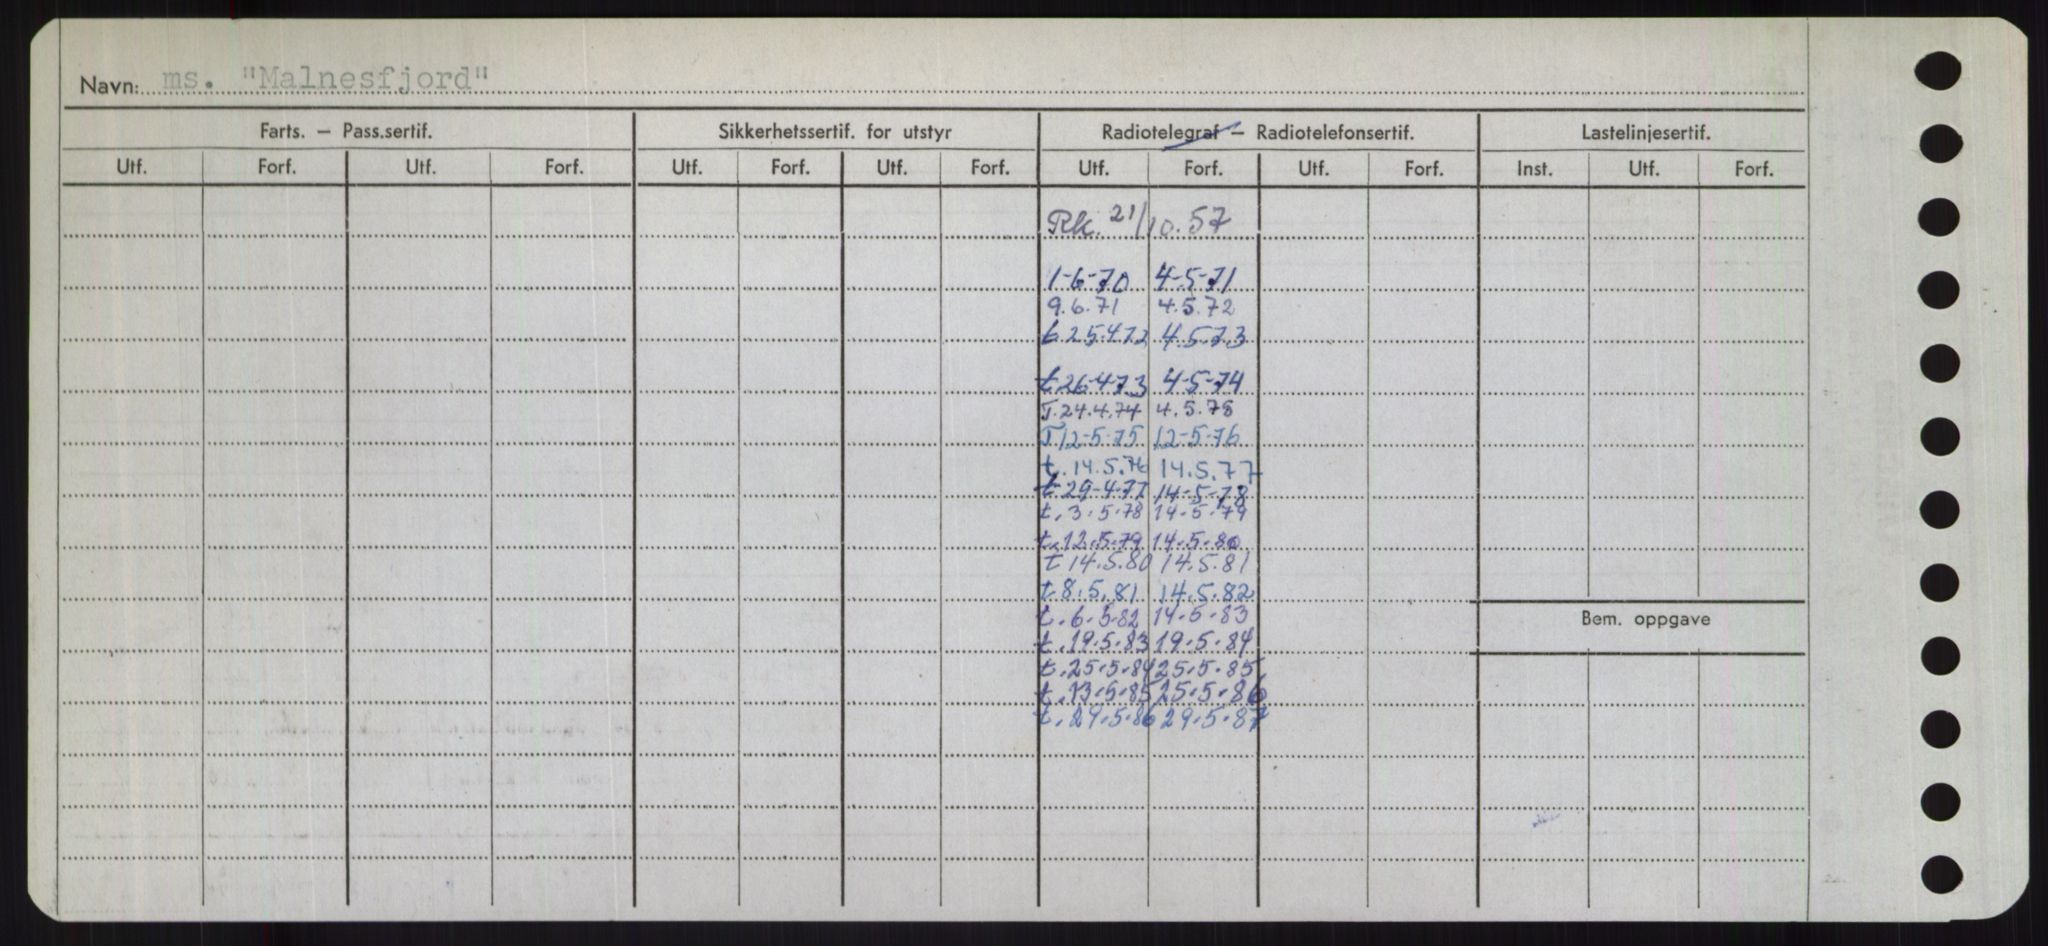 Navn: ms. "Malnesfjord"
Farts. – Pass.sertif. Sikkerhetssertif. for utstyr Radiotelegraf – Radiotelefonsertif. Lastelinjesertif.
Utf. Forf. Utf. Forf. Utf. Forf. Utf. Forf. Utf. Forf. Utf. Forf. Inst. Utf. Forf.
Rk. 21/10.57
1-6-70 4-5-71
9.6.71 4.5.72
t.25.4.72 4.5.73
t.26-4-73 4-5-74
T.24.4.74 4.5.75
T.12-5-75 12-5-76
t. 14.5.76 14.5.77
t 29-4-77 14-5-78
t. 3.5.78 14.5.79
t.12.5.79 14.5.80
t 14.5.80 14.5.81
t.8.5.81 14.5.82
t.6.5.82 14.5.83
Bem. oppgave
t.19.5.83 19.5.84
t.25.5.84 25.5.85
t.13.5.85 25.5.86
t.29.5.86 29.5.87